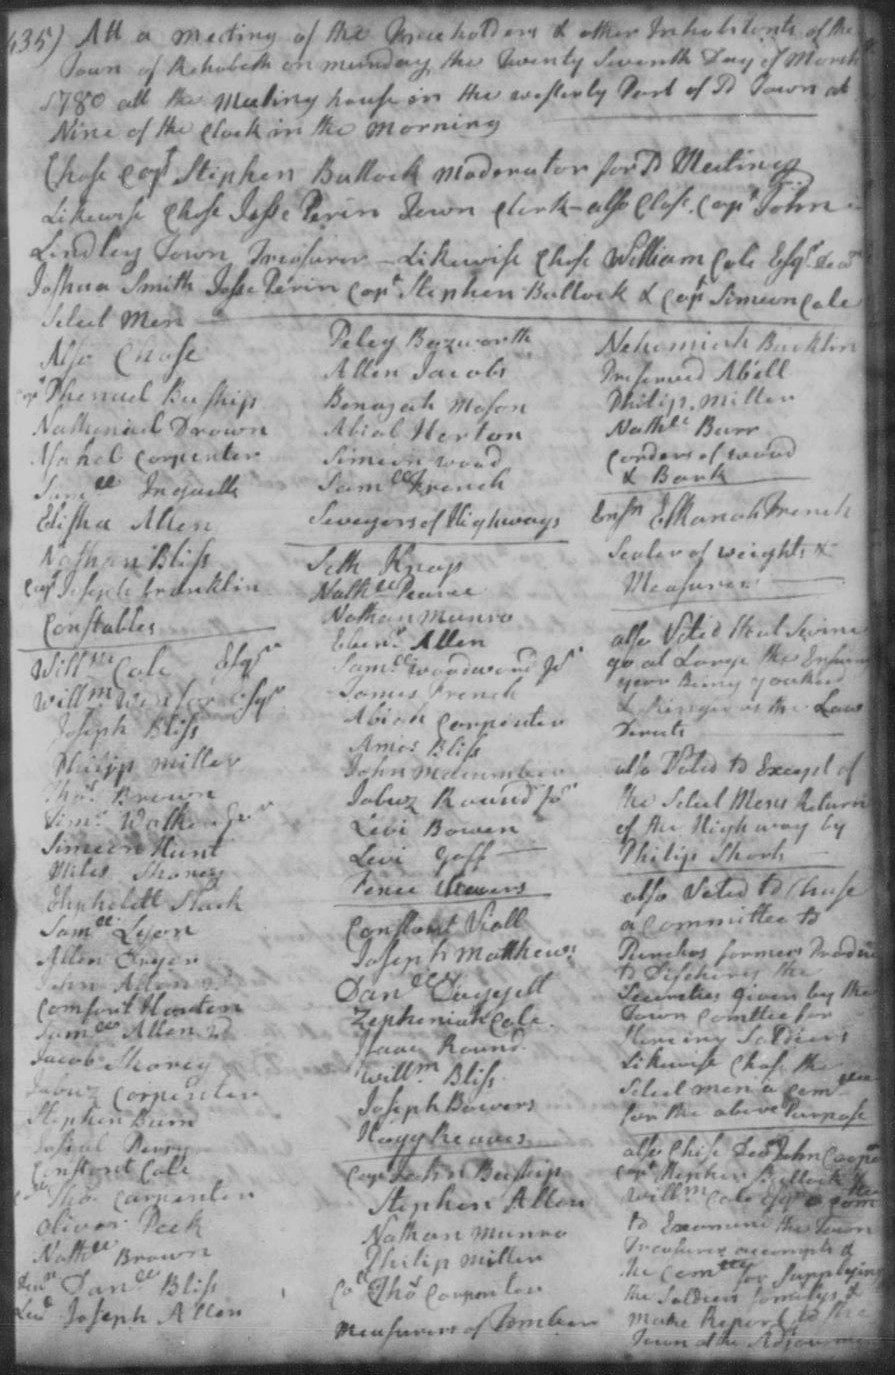 435) Att a meeting of the Freeholders & other Inhabitants of the
Town of Rehoboth on munday the Twenty Seventh Day of March
1780 att the Meeting house in the westerly Part of sd Town at
Nine of the Clock in the morning
Chose Capt Stephen Bullock moderator for sd Meeting
Likewise Chose Jesse Perin Town Clerk – also Chose Capt John
Lindley Town Treasurer – Likewise Chose William Cole Esqr Deacn
Joshua Smith Jesse Perin Capt Stephen Bullock & Capt Simeon Cole
Select Men
Also Chose
Capt Phanuel Bishop
Nathaniel Drown
Asahel Carpenter
Samll
Elisha Allen
Nathan Bliss
Capt Joseph Franklin
Constables
Willm Cole Esqr
Willm Winsor Esqr
Joseph Bliss
Philip Miller
Thos Brown
Timo Walker Jr
Simeon Hunt
Miles Shorey
Eliphelett Slack
Samll Lyon
Allen Dryer
John Allen 2d
Comfort Horton
Samll Allen 2d
Jacob Shorey
Jabez Carpenter
Stephen Burn
Josial Perry
Constant Cole
Thos Carpenter
Oliver Peck
Nathll Brown
Danll Bliss
Leut Joseph Allen
Peleg Bozworth
Allen Jacobs
Benajah Mason
Abial Horton
Simeon Wood
Samll French
Seveyers of Highways
Seth Knap
Nathll Pearce
Nathan Munro
Ebenr Allen
Samll Woodward Jr
James French
Abiah Carpenter
Amos Bliss
John Mdcumber
Jabez Round Jr
Levi Bowen
Levi Goff
Fence Viewers
Constant Viall
Joseph Matthews
Danll Daggett
Zepheniah Cole
Isaac Round
Willm Bliss
Joseph Bowers
Hogg Reaves
Capt John Bishop
Stephen Allen
Nathan Munro
Philip Miller
Coll Thos Carpenter
Measurers of Tomber
Nehemiah Bucklin
Preserved Abell
Philip Miller
Nathll Burr
Corders of wood
& Bark
Ensn Elkanah French
Sealer of weights &
Measures
also Voted that Swine
go at Large the Ensuing
year Being yoaked
& Ringed as the Law
Directs
also Voted to Except of
the Select Mens Return
of the Highway by
Philip Short
also Voted to Chuse
a Committee to
Purches
to Discharg the
Securities given by the
Town Comttee for
Hireing Soldiers
Likewise Chose the
Select men a Comttee
for the above Purpose
also Chose Dean John
Capt Stephen Bullock &
Willm Cole Esqr a Comttee
to Examine the Town
Treasurer accompts &
the Comttee for Supplying
the Soldiers familys &
make Report to the
Town at the